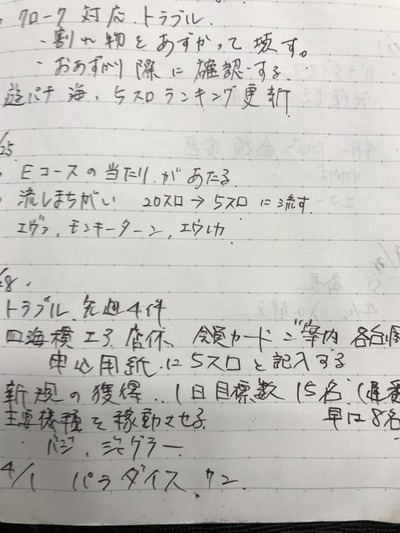 。クローク対応 トラブル.
・割れ物をあずかって壊す。
・おあずかり際に確認する
遊パチ 海、5スロランキング更新
25
。Eコースの当たりがあたる.
。流しまちがい 20スロ→5スロに流す
・エヴァ,モンキーターン,エウレカ
8.
トラブル.先週4件
四海横エヌ 店休 会員カードご案内 各台
申込用紙に5スロと記入する
新規の獲得.1日目標数15名(遅番
主要機種を稼動させる 早は8名
・バジ,ジャグラー
4/1 パラダイス